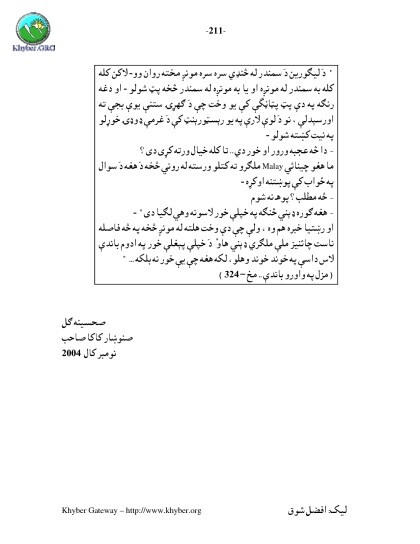 -211-
Khyber.ORG
" دَ لیګورین دَ سمندر له څنډې سره سره مونږ مخته روان وو - لاکن کله
کله به سمندر له مونږه او یا به مونږه له سمندر څخه پټ شولو - او دغه
رنګه په دې پټ پټانګې کې یو وخت چې دَ ګهړۍ ستنې یوې بجې ته
اورسېدلې ، نو دَ لوې لارې په یو رېسټورېنټ کې دَ غرمې ډوډۍ خوړلو
په نیت کښته شولو -
- دا څه عجبه ورور او خور دي.. تا کله خیال ورته کړی دی ؟
ما هغو چینائي Malay ملګرو ته کتلو ورسته له روني څخه دَ هغه دَ سوال
په ځواب کې پوښتنه اوکړه -
- څه مطلب؟ پوه نه شوم
- هغه ګوره ډېنې څنګه په خپلې خور لاسونه وهي لګیا دی " -
او رښتیا خبره هم وه ، ولې چې دې وخت هلته له مونږ څخه په څه فاصله
ناست چائنیز ملې ملګري ډېني هاو' دَ خپلې پېغلې خور په ادوم باندې
لاس داسې په خوند خوند وهلو ، لکه هغه چې یې خور نه بلکه... "
( مزل په واورو باندې.. مخ – 324 )
صحسینه ګل
صنوښار کاکا صاحب
نومبر کال 2004
Khyber Gateway – http://www.khyber.org
لیک: افضل شوق